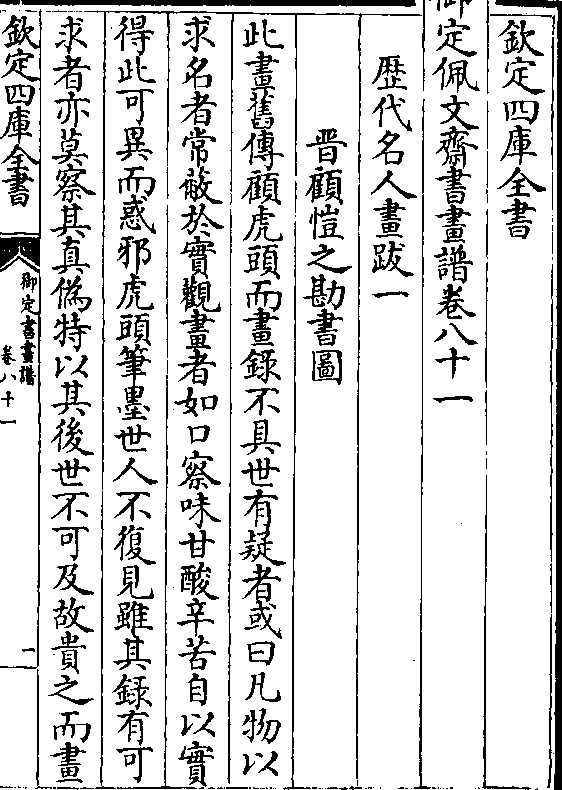 欽定四庫全書
御定佩文齋書畫譜卷八十一
歴代名人畫跋一
晉顧愷之勘書圖
此畫舊傳顧虎頭而畫錄不具世有疑者或曰凡物以
求名者常蔽於實觀畫者如口察味甘酸辛苦自以實
得此可異而惑邪虎頭筆墨世人不復見雖其錄有可
求者亦莫察其真偽特以其後世不可及故貴之而畫
欽定四庫全書
御定書畫譜
卷八十一
一